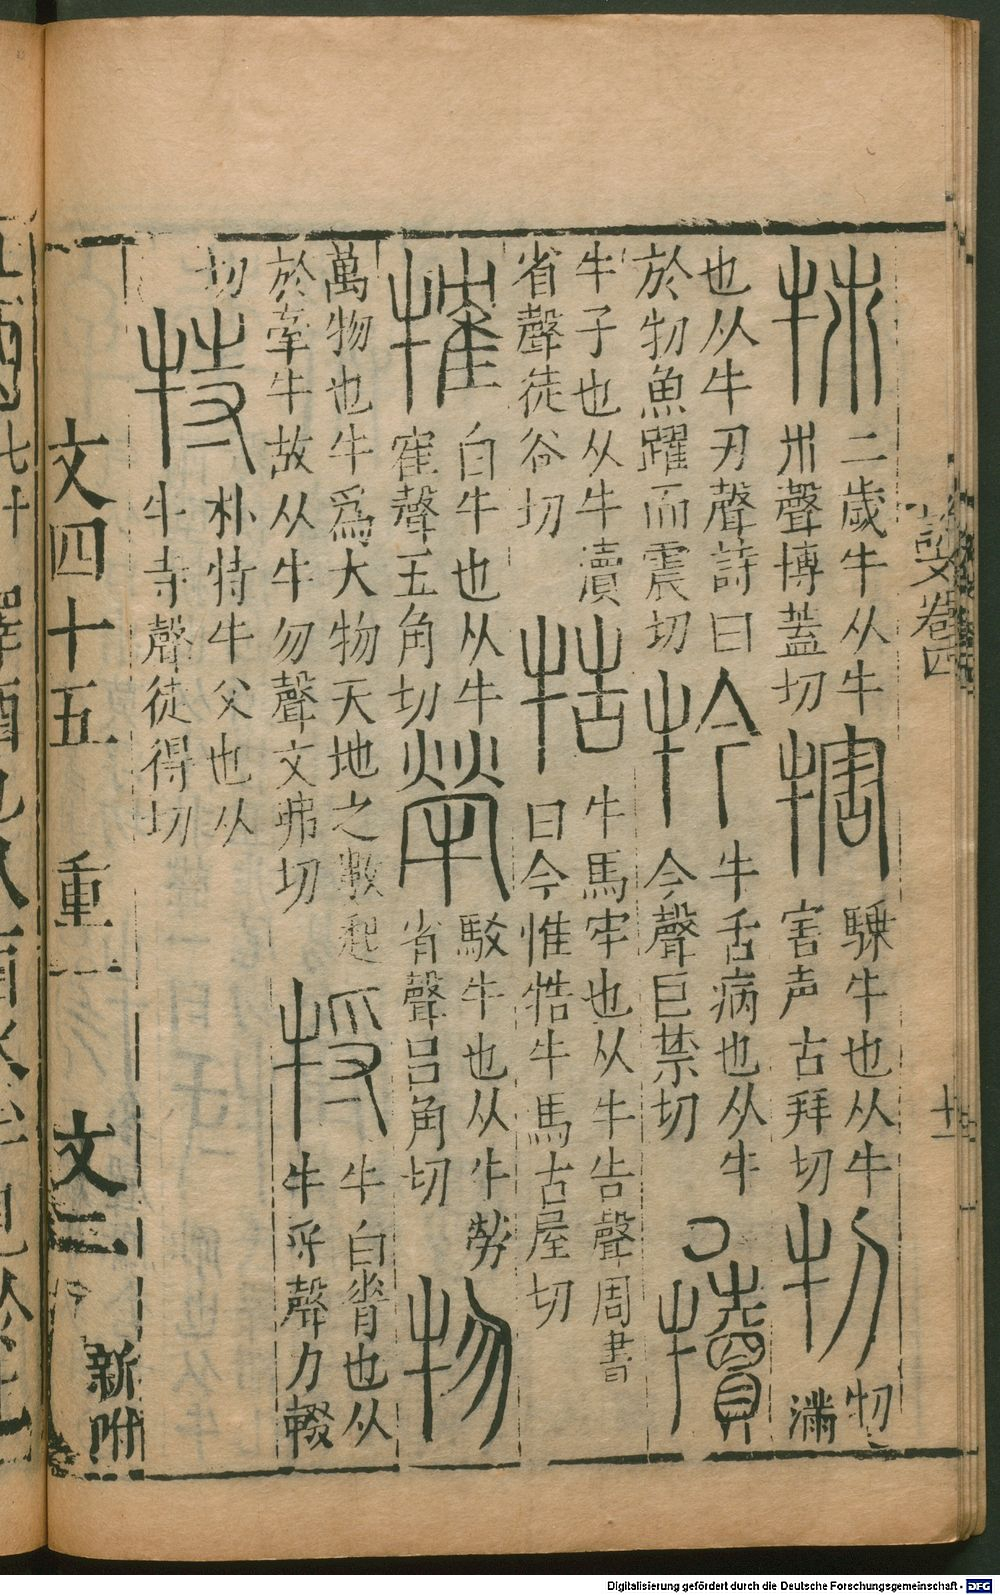 𤘦 二歲牛从牛
𣎵聲博蓋切
犗 騬牛也从牛
害声古拜切
牣 牣
滿
也从牛刃聲詩曰
於牣魚躍而震切
牛舌病也从牛
今聲巨禁切
犢
牛子也从牛瀆
省聲徒谷切
牿 牛馬牢也从牛告聲周書
曰今惟牿牛馬古屋切
㹊 白牛也从牛
隺聲五角切
犖 駁牛也从牛勞
省聲呂角切
物
萬物也牛爲大物天地之數起
於牽牛故从牛勿聲文弗切
牛白脊也从
牛寽聲力輟
切
特 朴特牛父也从
牛寺聲徒得切
文四十五 重一 文二
新附
卷四
十一